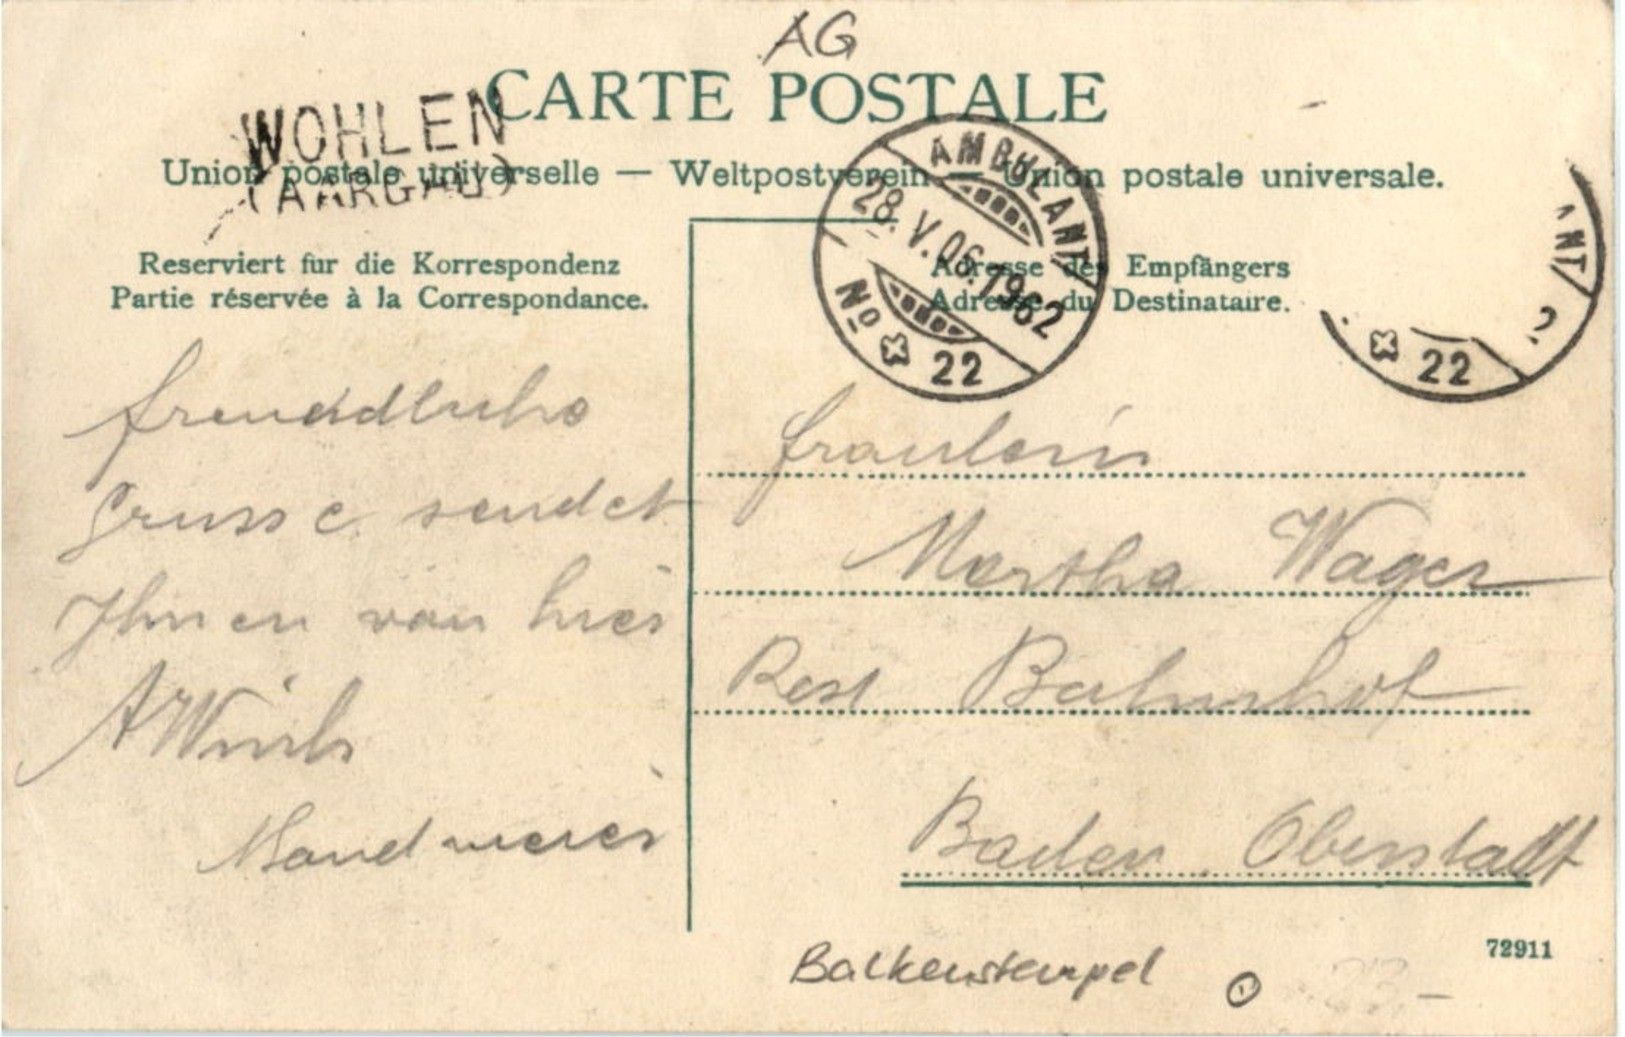 AG
CARTE POSTALE
WOHLEN
(AARGAU)
Union postale universelle — Weltpostverein — Union postale universale.
AMBULANT
28. V. 06. 1962
No 22
ANT
22
Reserviert fur die Korrespondenz
Partie réservée à la Correspondance.
Adresse des Empfängers
Adresse du Destinataire.
Grusse sendet
Ihnen von hier
Fraulein
Martha Wager
Rest. Bahnhof
Baden Oberstadt
72911
Balkenstempel